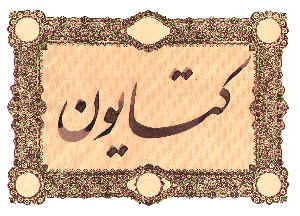 کتایون